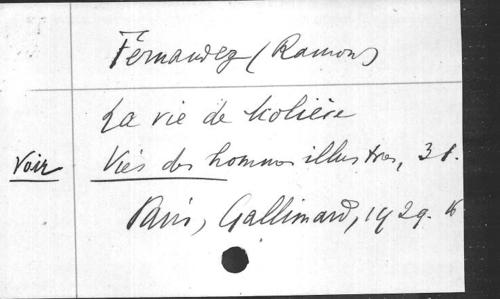 Fernandez (Ramon)
La vie de Molière
Voir Vies des hommes illustres, 31.
Paris, Gallimard, 1929.